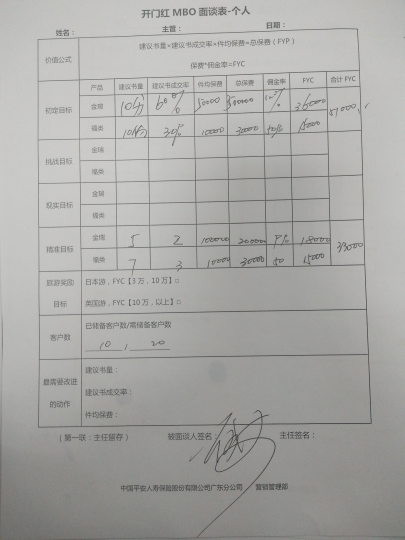 开门红 MBO 面谈表-个人
姓名： 主管： 日期：
价值公式 建议书量×建议书成交率×件均保费=总保费（FYP）
保费*佣金率=FYC
产品 建议书量 建议书成交率 件均保费 总保费 佣金率 FYC 合计 FYC
初定目标 金瑞 10份 60% 50000 300000 36000 51000
福类 10份 30% 10000 30000 50% 15000
挑战目标 金瑞
福类
现实目标 金瑞
福类
精准目标 金瑞 5 2 100000 200000 9% 18000 33000
福类 7 3 10000 30000 50 15000
旅游奖励 日本游，FYC【3 万，10 万】□
目标 英国游，FYC【10 万，以上】□
客户数 已储备客户数/需储备客户数
10 / 20
最需要改进的动作 建议书量：
建议书成交率：
件均保费：
（第一联：主任留存） 被面谈人签名： 主任签名：
中国平安人寿保险股份有限公司广东分公司 营销管理部